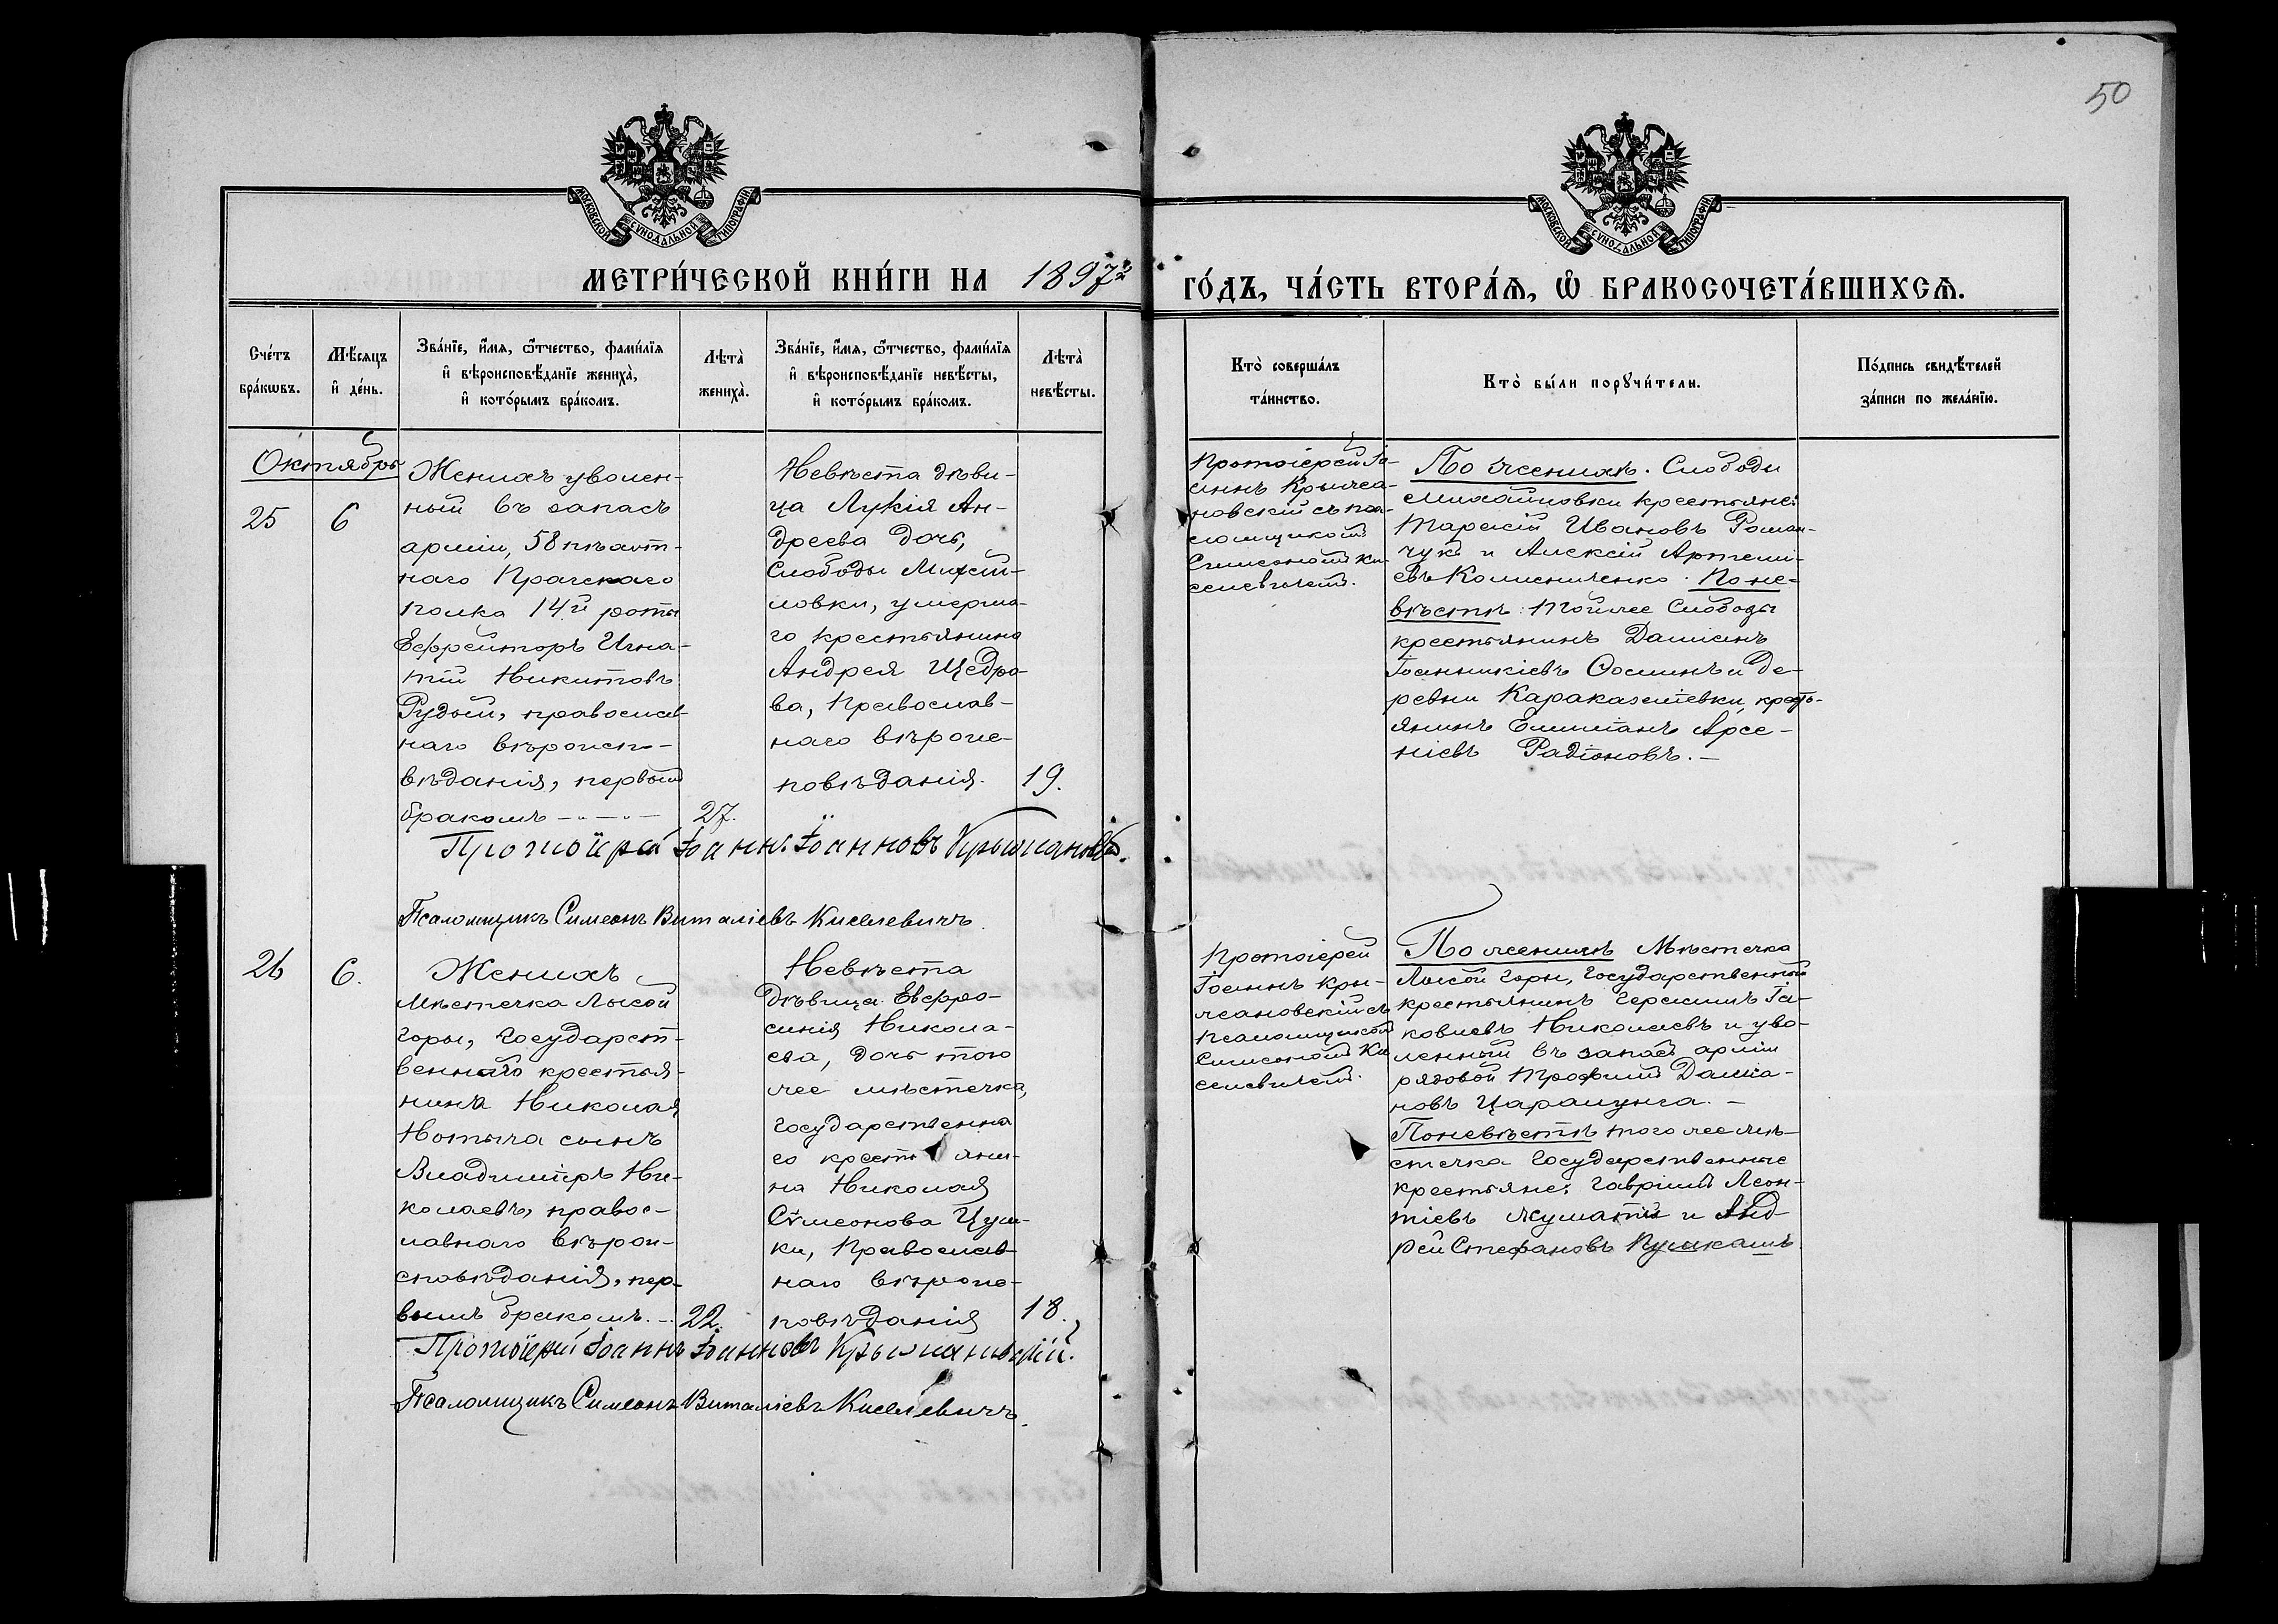 50
МОСКОВСКОЙ СѴНОДАЛЬНОЙ ТИПОГРАФІИ
МОСКОВСКОЙ СѴНОДАЛЬНОЙ ТИПОГРАФІИ
МЕТРИ́ЧЕСКОЙ КНИ́ГИ НА 1897
ГО́ДЪ, ЧА́СТЬ ВТОРА́Я, Ѽ БРАКОСОЧЕТА́ВШИХСѦ.
Сче́тъ
бра́кѡвъ.
Мѣ́сяцъ
и҆ де́нь.
Зва́нїе, и҆́мя, ѻ҆́тчество, фами́лїя
и҆ вѣроисповѣ́данїе жениха̀,
и҆ кото́рымъ бра́комъ.
Лѣта̀
жениха̀.
Зва́нїе, и҆́мя, ѻ҆́тчество, фами́лїя
и҆ вѣроисповѣ́данїе невѣ́сты,
и҆ кото́рымъ бра́комъ.
Лѣта̀
невѣ́сты.
Кто̀ соверша́лъ
та́инство.
Кто̀ бы́ли порꙋчи́тели.
По́дпись свидѣ́телей
за́писи по жела́нїю.
Октябрь
25
6
Женихъ уволен-
ный въ запасъ
арміи, 58 пѣхот-
наго Прагскаго
полка 14й роты
Ефрейторъ Игна-
тій Никитовъ
Рудый, православ-
наго вѣроиспо-
вѣданія, первымъ
бракомъ
27.
Невѣста дѣви-
ца Лукія Ан-
дреева дочь,
Слободы Михай-
ловки, умерша-
го крестьянина
Андрея Щедро-
ва, Православ-
наго вѣроис-
повѣданія.
19.
Протоіерей Іо-
аннъ Крыжа-
новскій съ пса-
ломщикомъ
Симеономъ Ки-
селевичемъ.
По женихѣ. Слободы
Михайловки крестьяне:
Тарасій Ивановъ Роман-
чукъ и Алексій Артеми-
евъ Колисниченко. По не-
вѣстѣ: Той же Слободы
крестьянинъ Даміанъ
Іоанникіевъ Фоминъ и де-
ревни Караказелевки, кресть-
янинъ Емиліанъ Арсе-
ніевъ Радіоновъ.
Протоіерей Іоаннъ Іоанновъ Крыжановскій.
Псаломщикъ Симеонъ Виталіевъ Киселевичъ.
26
6.
Женихъ
Мѣстечка Лысой
горы, Государст-
веннаго крестья-
нина Николая
Нотыча сынъ
Владиміръ Ни-
колаевъ, правос-
лавнаго вѣрои-
сповѣданія, пер-
вымъ бракомъ.
22.
Невѣста
дѣвица Евфро-
синія Никола-
ева, дочь того
же мѣстечка,
Государственна
го крестьяни-
на Николая
Сѵмеонова Цуш-
ки, Православ-
наго вѣроис-
повѣданія
18.
Протоіерей
Іоаннъ Кры-
жановскій съ
псаломщикомъ
Симеономъ Ки
селевичемъ.
По женихѣ Мѣстечка
Лысой горы, Государственный
крестьянинъ Герасимъ Іа-
ковлевъ Николаевъ и уво-
ленный въ запасъ арміи
рядовой Трофимъ Даміа-
новъ Царалунга.
По невѣстѣ того же мѣ-
стечка Государственные
крестьяне: Гавріилъ Леон-
тіевъ Жуматій и Анд-
рей Стефановъ Пушкашъ.
Протоіерей Іоаннъ Іоанновъ Крыжановскій.
Псаломщикъ Симеонъ Виталіевъ Киселевичъ.